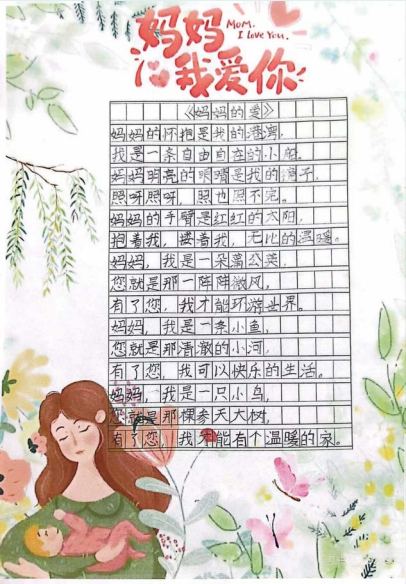 妈妈
Mom.
I Love You.
我爱你
《妈妈的爱》
妈妈的怀抱是我的港湾,
我是一条自由自在的小船。
妈妈明亮的眼睛是我的镜子,
照呀照呀,照也照不完。
妈妈的手臂是红红的太阳,
抱着我,搂着我,无比的温暖。
妈妈,我是一朵蒲公英,
您就是那一阵阵微风,
有了您,我才能环游世界。
妈妈,我是一条小鱼,
您就是那清澈的小河,
有了您,我可以快乐的生活。
妈妈,我是一只小鸟,
您就是那棵参天大树,
有了您,我才能有个温暖的家。